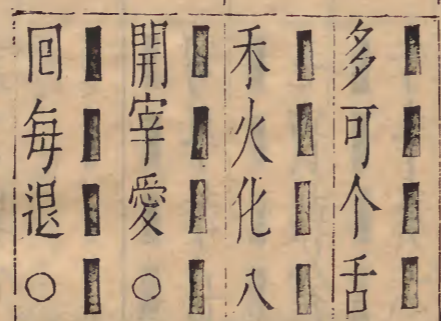 多可个舌
禾火化八
開宰愛○
回每退○